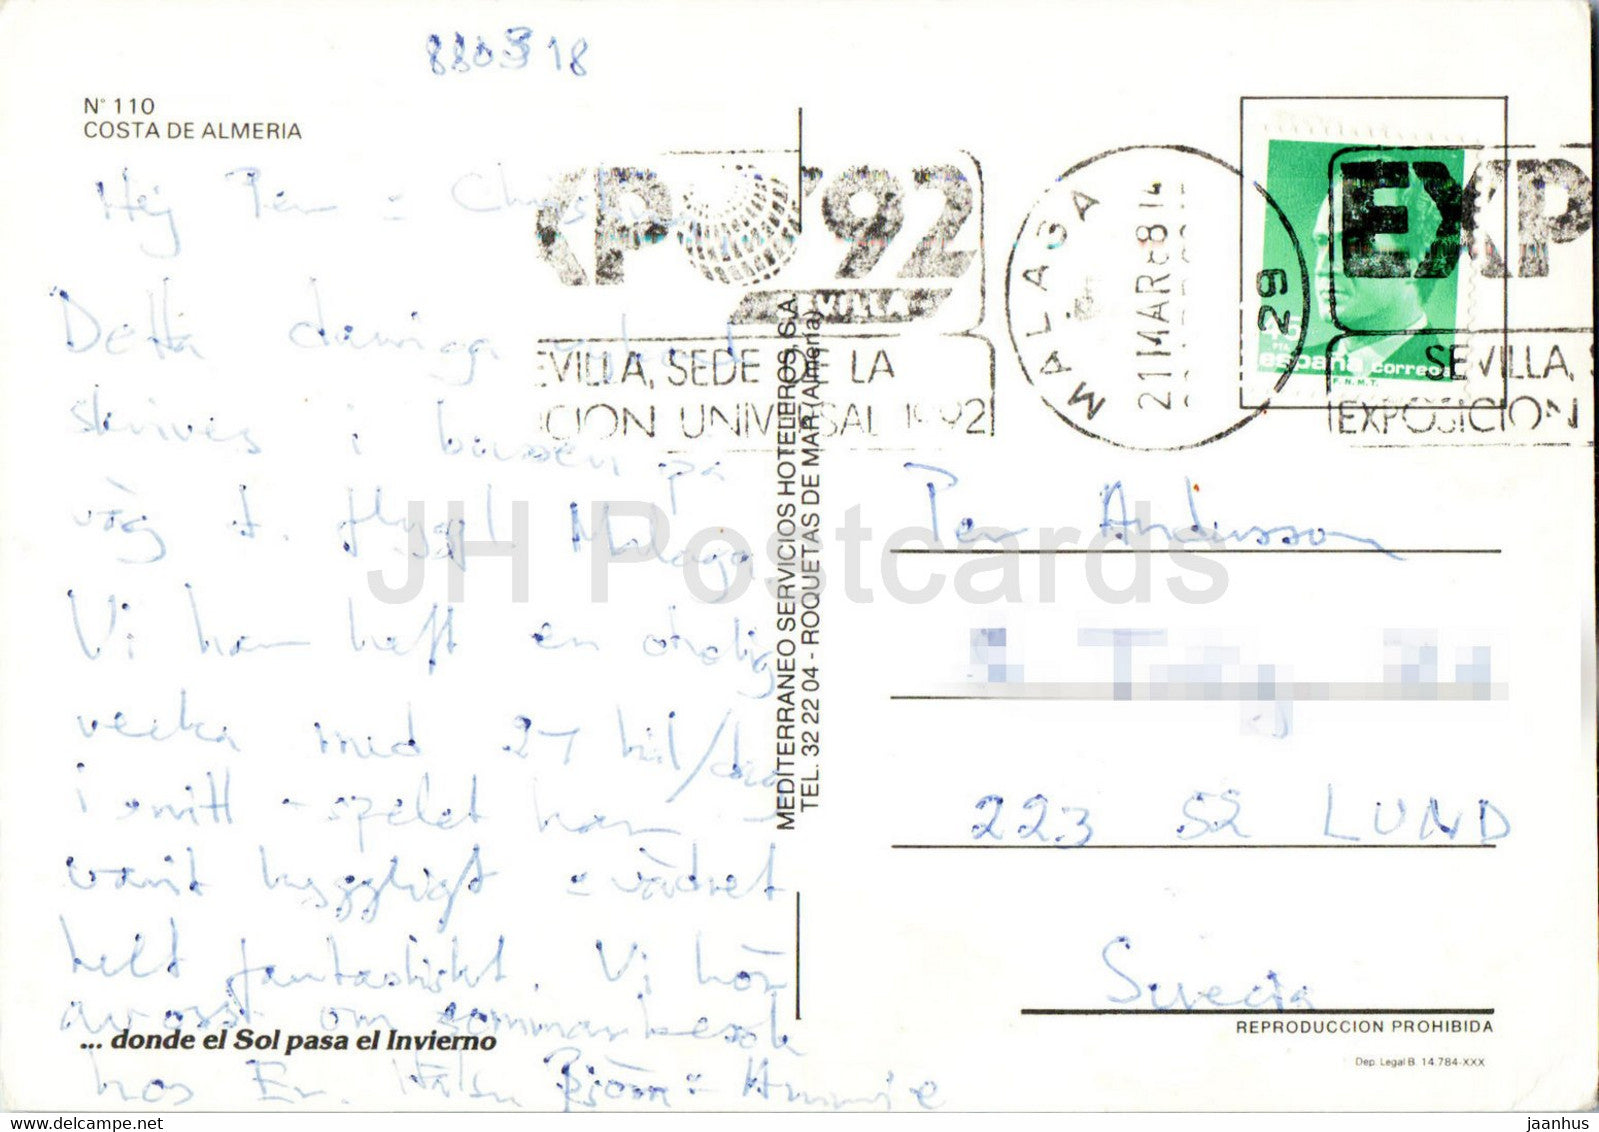 880318
N° 110
COSTA DE ALMERIA
Hej Per = Christina
Detta darriga vykort
skrives i bussen på
väg t. flygpl. Malaga.
Vi har haft en otrolig
vecka med 27 hål/dag
i snitt - spelet har
varit hyggligt = vädret
helt fantastiskt. Vi hör
av oss om sommarbesök
hos Er. Hälsn Björn = Annie
... donde el Sol pasa el Invierno
MEDITERRANEO SERVICIOS HOTELEROS, S.A.
TEL. 32 22 04 - ROQUETAS DE MAR (Almería)
EXPO'92
SEVILLA
SEVILLA, SEDE DE LA
EXPOSICION UNIVERSAL 1992
MALAGA
21 MAR 88 14
29
EXP
SEVILLA, S
EXPOSICION
PTA
españa correos
F.N.M.T.
Per Andersson
223 52 LUND
Suecia
REPRODUCCION PROHIBIDA
Dep. Legal B. 14.784-XXX
JH Postcards
https://www.delcampe.net
jaanhus